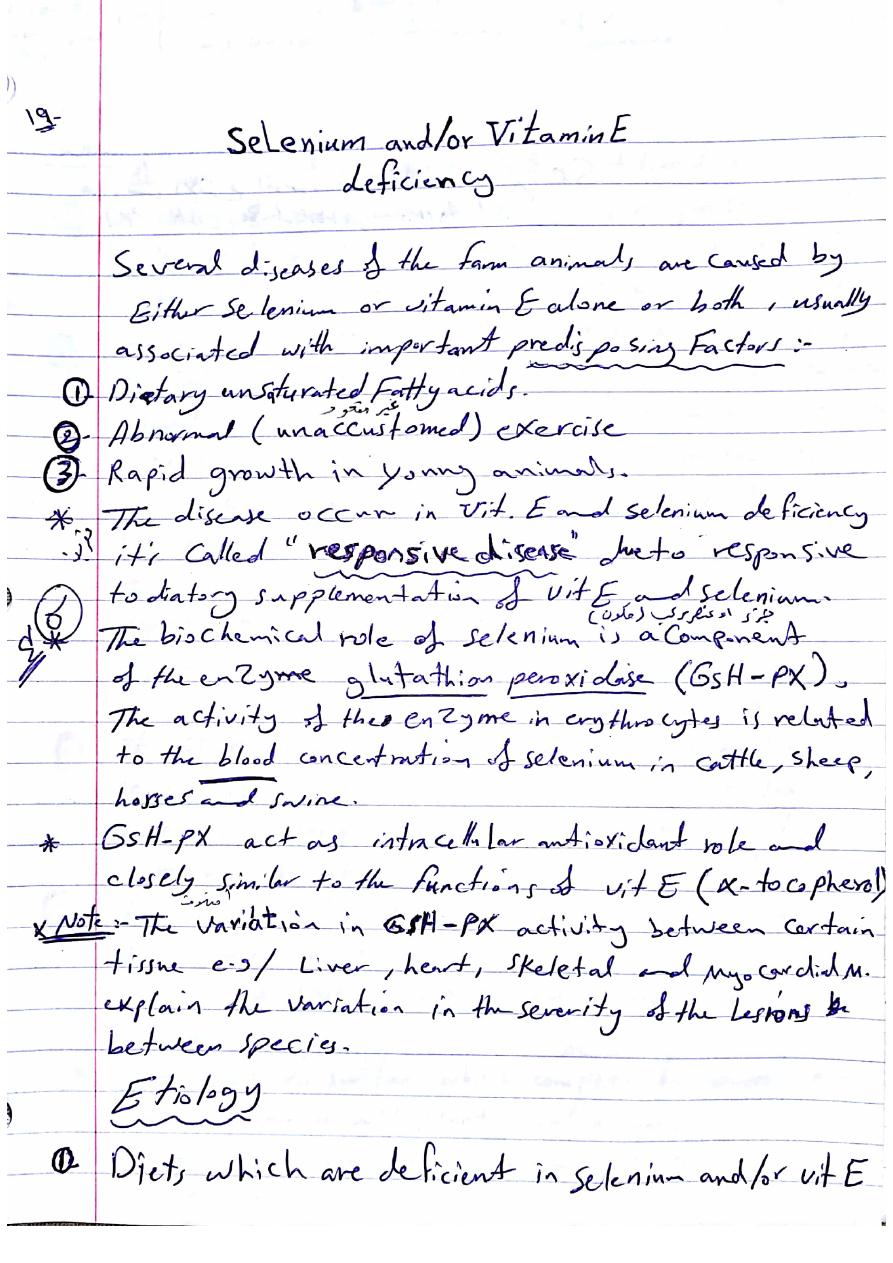 19-
Selenium and/or Vitamin E
deficiency
Several diseases of the farm animals are caused by
Either selenium or vitamin E alone or both, usually
associated with important predisposing Factors :-
① Dietary unsaturated Fatty acids.
غير متعود
②- Abnormal (unaccustomed) exercise
③- Rapid growth in young animals.
* The disease occur in Vit. E and selenium deficiency
it's called "responsive disease" due to responsive
to diatory supplementation of vit E and selenium.
(مكون)
6
* The biochemical role of selenium is a Component
of the enzyme glutathion peroxidase (GSH-PX).
The activity of the enzyme in erythrocytes is related
to the blood concentration of selenium in cattle, sheep,
horses and swine.
* GSH-PX act as intracellular antioxidant role and
closely similar to the functions of vit E (α-tocopherol)
x Note :- The variation in GSH-PX activity between certain
tissue e.g/ Liver, heart, skeletal and Myocardial M.
explain the variation in the severity of the Lesions
between species.
Etiology
① Diets which are deficient in selenium and/or vit E